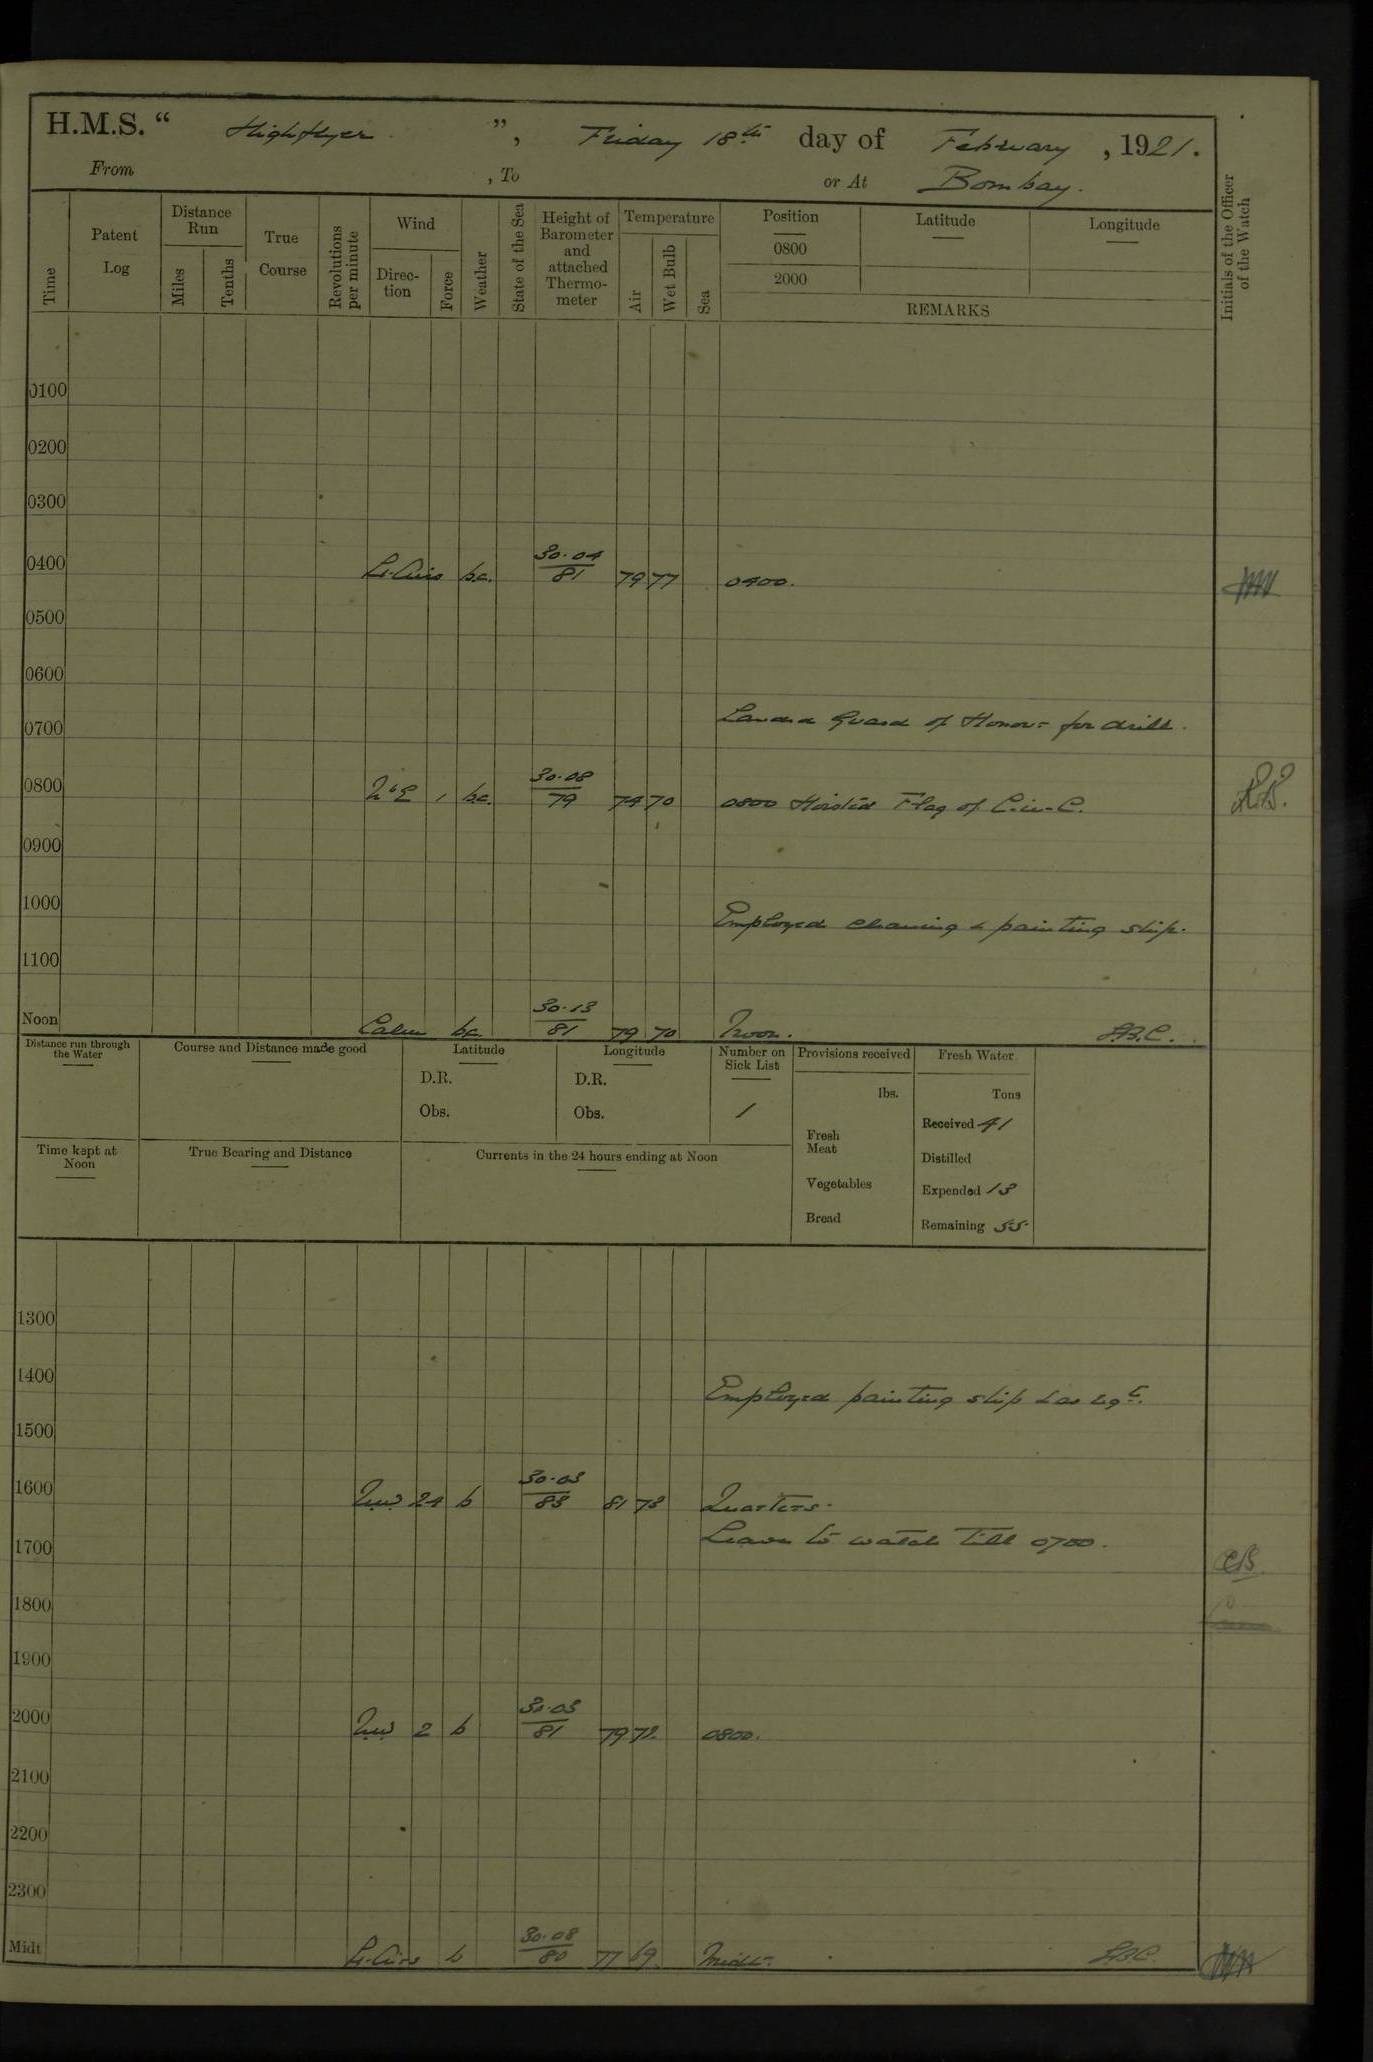 H.M.S. " Highflyer ", Friday 18th day of February, 1921.
From , To or At Bombay.
Time Patent Log Distance Run Miles Tenths True Course Revolutions per minute Wind Direc-tion Force Weather State of the Sea Height of Barometer and attached Thermo-meter Temperature Air Wet Bulb Sea Position 0800 2000 Latitude Longitude
REMARKS
Initials of the Officer of the Watch
0100
0200
0300
0400 Lt. Airs b.c. 30.04/81 79 77 0400.
0500
0600
0700 Landed Guard of Honour for drill.
0800 N'E 1 b.c. 30.08/79 74 70 0800 Hoisted Flag of C-in-C.
0900
1000 Employed cleaning & painting ship.
1100
Noon Calm bc. 30.13/81 79 70 Noon. A.B.C.
Distance run through the Water Course and Distance made good Latitude Longitude Number on Sick List Provisions received Fresh Water
D.R. D.R. lbs. Tons
Obs. Obs. 1 Received 41
Fresh Meat
Distilled
Time kept at Noon True Bearing and Distance Currents in the 24 hours ending at Noon
Vegetables Expended 13
Bread Remaining 55
1300
1400 Employed painting ship & as reqte.
1500
1600 NW 24 b 30.03/83 81 73 Quarters.
1700 Leave to watch till 0700.
1800
1900
2000 NW 2 b 30.03/81 79 72 0800.
2100
2200
2300
Midt Lt. Airs b 30.08/80 77 69 Midt.